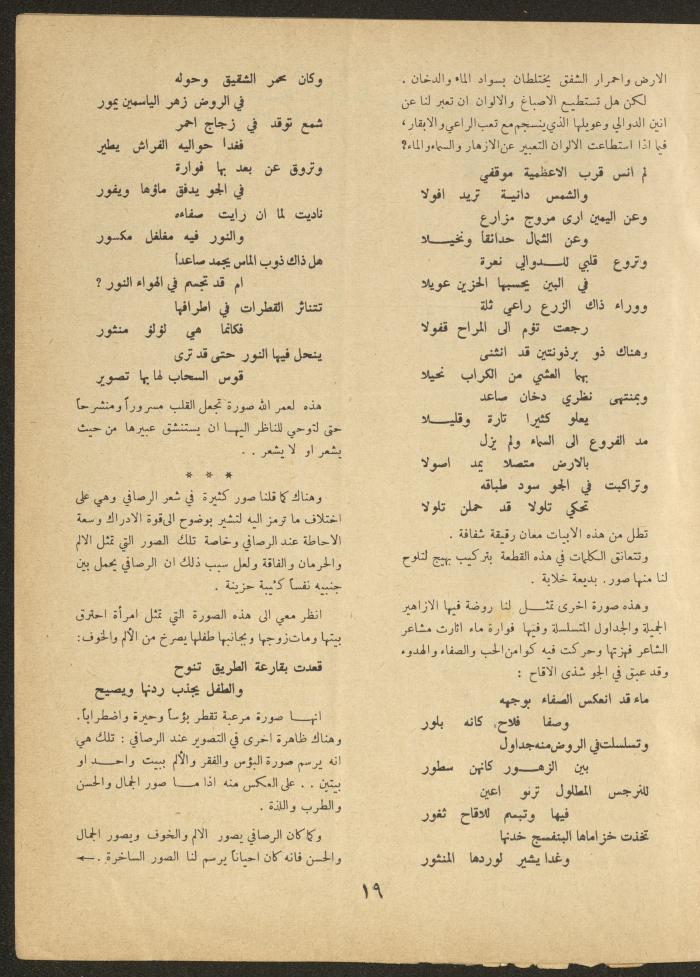 الارض واحمرار الشفق يختلطان بسواد الماء والدخان .
لكن هل تستطيع الاصباغ والالوان ان تعبر لنا عن
انين الدوالي وعويلها الذي ينسجم مع تعب الراعي والابقار،
فيما اذا استطاعت الالوان التعبير عن الازهار والسماء والماء؟
لم انس قرب الاعظمية موقفي
والشمس دانية تريد افولا
وعن اليمين ارى مروج مزارع
وعن الشمال حدائقا ونخيلا
وتروع قلبي للدوالي نعرة
في البين يحسبها الحزين عويلا
ووراء ذاك الزرع راعي ثلة
رجعت تؤم الى المراح قفولا
وهناك ذو برذونتين قد انثنى
بهما العشي من الكراب نحيلا
وبمنتهى نظري دخان صاعد
يعلو كثيرا تارة وقليلا
مد الفروع الى السماء ولم يزل
بالارض متصلا يمد اصولا
وتراكبت في الجو سود طباقه
تحكي تلولا قد حملن تلولا
تطل من هذه الابيات معان رقيقة شفافة .
وتتعانق الكلمات في هذه القطعة بتركيب بهيج لتلوح
لنا منها صور. بديعة خلابة .
وهذه صورة اخرى تمثل لنا روضة فيها الازاهير
الجميلة والجداول المتسلسلة وفيها فوارة ماء اثارت مشاعر
الشاعر فهزتها وحركت فيه كوامن الحب والصفاء والهدوء
وقد عبق في الجو شذى الاقاح :
ماء قد انعكس الصفاء بوجهه
وصفا فلاح كانه بلور
وتسلسلت في الروض منه جداول
بين الزهور كانهن سطور
للنرجس المطلول ترنو اعين
فيها وتبسم للاقاح ثغور
تخذت خزاماها البنفسج خدنها
وغدا يشير لوردها المنثور
وكان محمر الشقيق وحوله
في الروض زهر الياسمين يمور
شمع توقد في زجاج احمر
فغدا حواليه الفراش يطير
وتروق عن بعد بها فوارة
في الجو يدفق ماؤها ويفور
ناديت لما ان رايت صفاءه
والنور فيه مغلغل مكسور
هل ذاك ذوب الماس يجمد صاعداً
ام قد تجسم في الهواء النور ؟
تتناثر القطرات في اطرافها
فكانما هي لؤلؤ منثور
ينحل فيها النور حتى قد ترى
قوس السحاب لها بها تصوير
هذه لعمر الله صورة تجعل القلب مسروراً ومنشرحاً
حتى لتوحي للناظر اليها ان يستنشق عبيرها من حيث
يشعر او لا يشعر . .
* * *
وهناك كما قلنا صور كثيرة في شعر الرصافي وهي على
اختلاف ما ترمز اليه لتشير بوضوح الى قوة الادراك وسعة
الاحاطة عند الرصافي وخاصة تلك الصور التي تمثل الالم
والحرمان والفاقة ولعل سبب ذلك ان الرصافي يحمل بين
جنبيه نفساً كئيبة حزينة .
انظر معي الى هذه الصورة التي تمثل امرأة احترق
بيتها ومات زوجها وبجانبها طفلها يصرخ من الألم والخوف:
قعدت بقارعة الطريق تنوح
والطفل يجذب ردنها ويصيح
انها صورة مرعبة تقطر بؤساً وحيرة واضطراباً.
وهناك ظاهرة اخرى في التصوير عند الرصافي : تلك هي
انه يرسم صورة البؤس والفقر والألم ببيت واحد او
بيتين . . على العكس منه اذا ما صور الجمال والحسن
والطرب واللذة .
وكما كان الرصافي يصور الالم والخوف ويصور الجمال
والحسن فانه كان احياناً يرسم لنا الصور الساخرة . ←
١٩